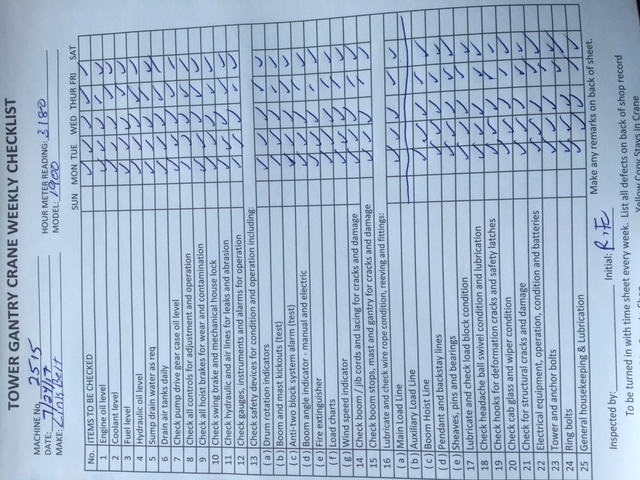 TOWER GANTRY CRANE WEEKLY CHECKLIST
MACHINE No. 2515
DATE: 7/24/17 HOUR METER READING: 3180
MAKE: Link Belt MODEL: 1900
SUN MON TUE WED THUR FRI SAT
No. ITEMS TO BE CHECKED
1 Engine oil level
2 Coolant level
3 Fuel level
4 Hydraulic oil level
5 Sump drain water as req
6 Drain air tanks daily
7 Check pump drive gear case oil level
8 Check all controls for adjustment and operation
9 Check all hoist brakes for wear and contamination
10 Check swing brake and mechanical house lock
11 Check hydraulic and air lines for leaks and abrasion
12 Check gauges, instruments and alarms for operation
13 Check safety devices for condition and operation including:
(a) Drum rotation indicators
(b) Boom and mast kickouts (test)
(c) Anti-two block system alarm (test)
(d) Boom angle indicator - manual and electric
(e) Fire extinguisher
(f) Load charts
(g) Wind speed indicator
14 Check boom / jib cords and lacing for cracks and damage
15 Check boom stops, mast and gantry for cracks and damage
16 Lubricate and check wire rope condition, reeving and fittings:
(a) Main Load Line
(b) Auxiliary Load Line
(c) Boom Hoist Line
(d) Pendant and backstay lines
(e) Sheaves, pins and bearings
17 Lubricate and check load block condition
18 Check headache ball swivel condition and lubrication
19 Check hooks for deformation cracks and safety latches
20 Check cab glass and wiper condition
21 Check for structural cracks and damage
22 Electrical equipment, operation, condition and batteries
23 Tower and anchor bolts
24 Ring bolts
25 General housekeeping & Lubrication
Make any remarks on back of sheet.
Inspected by: Initial: R.E
To be turned in with time sheet every week. List all defects on back of shop record
Yellow Copy Stays in Crane